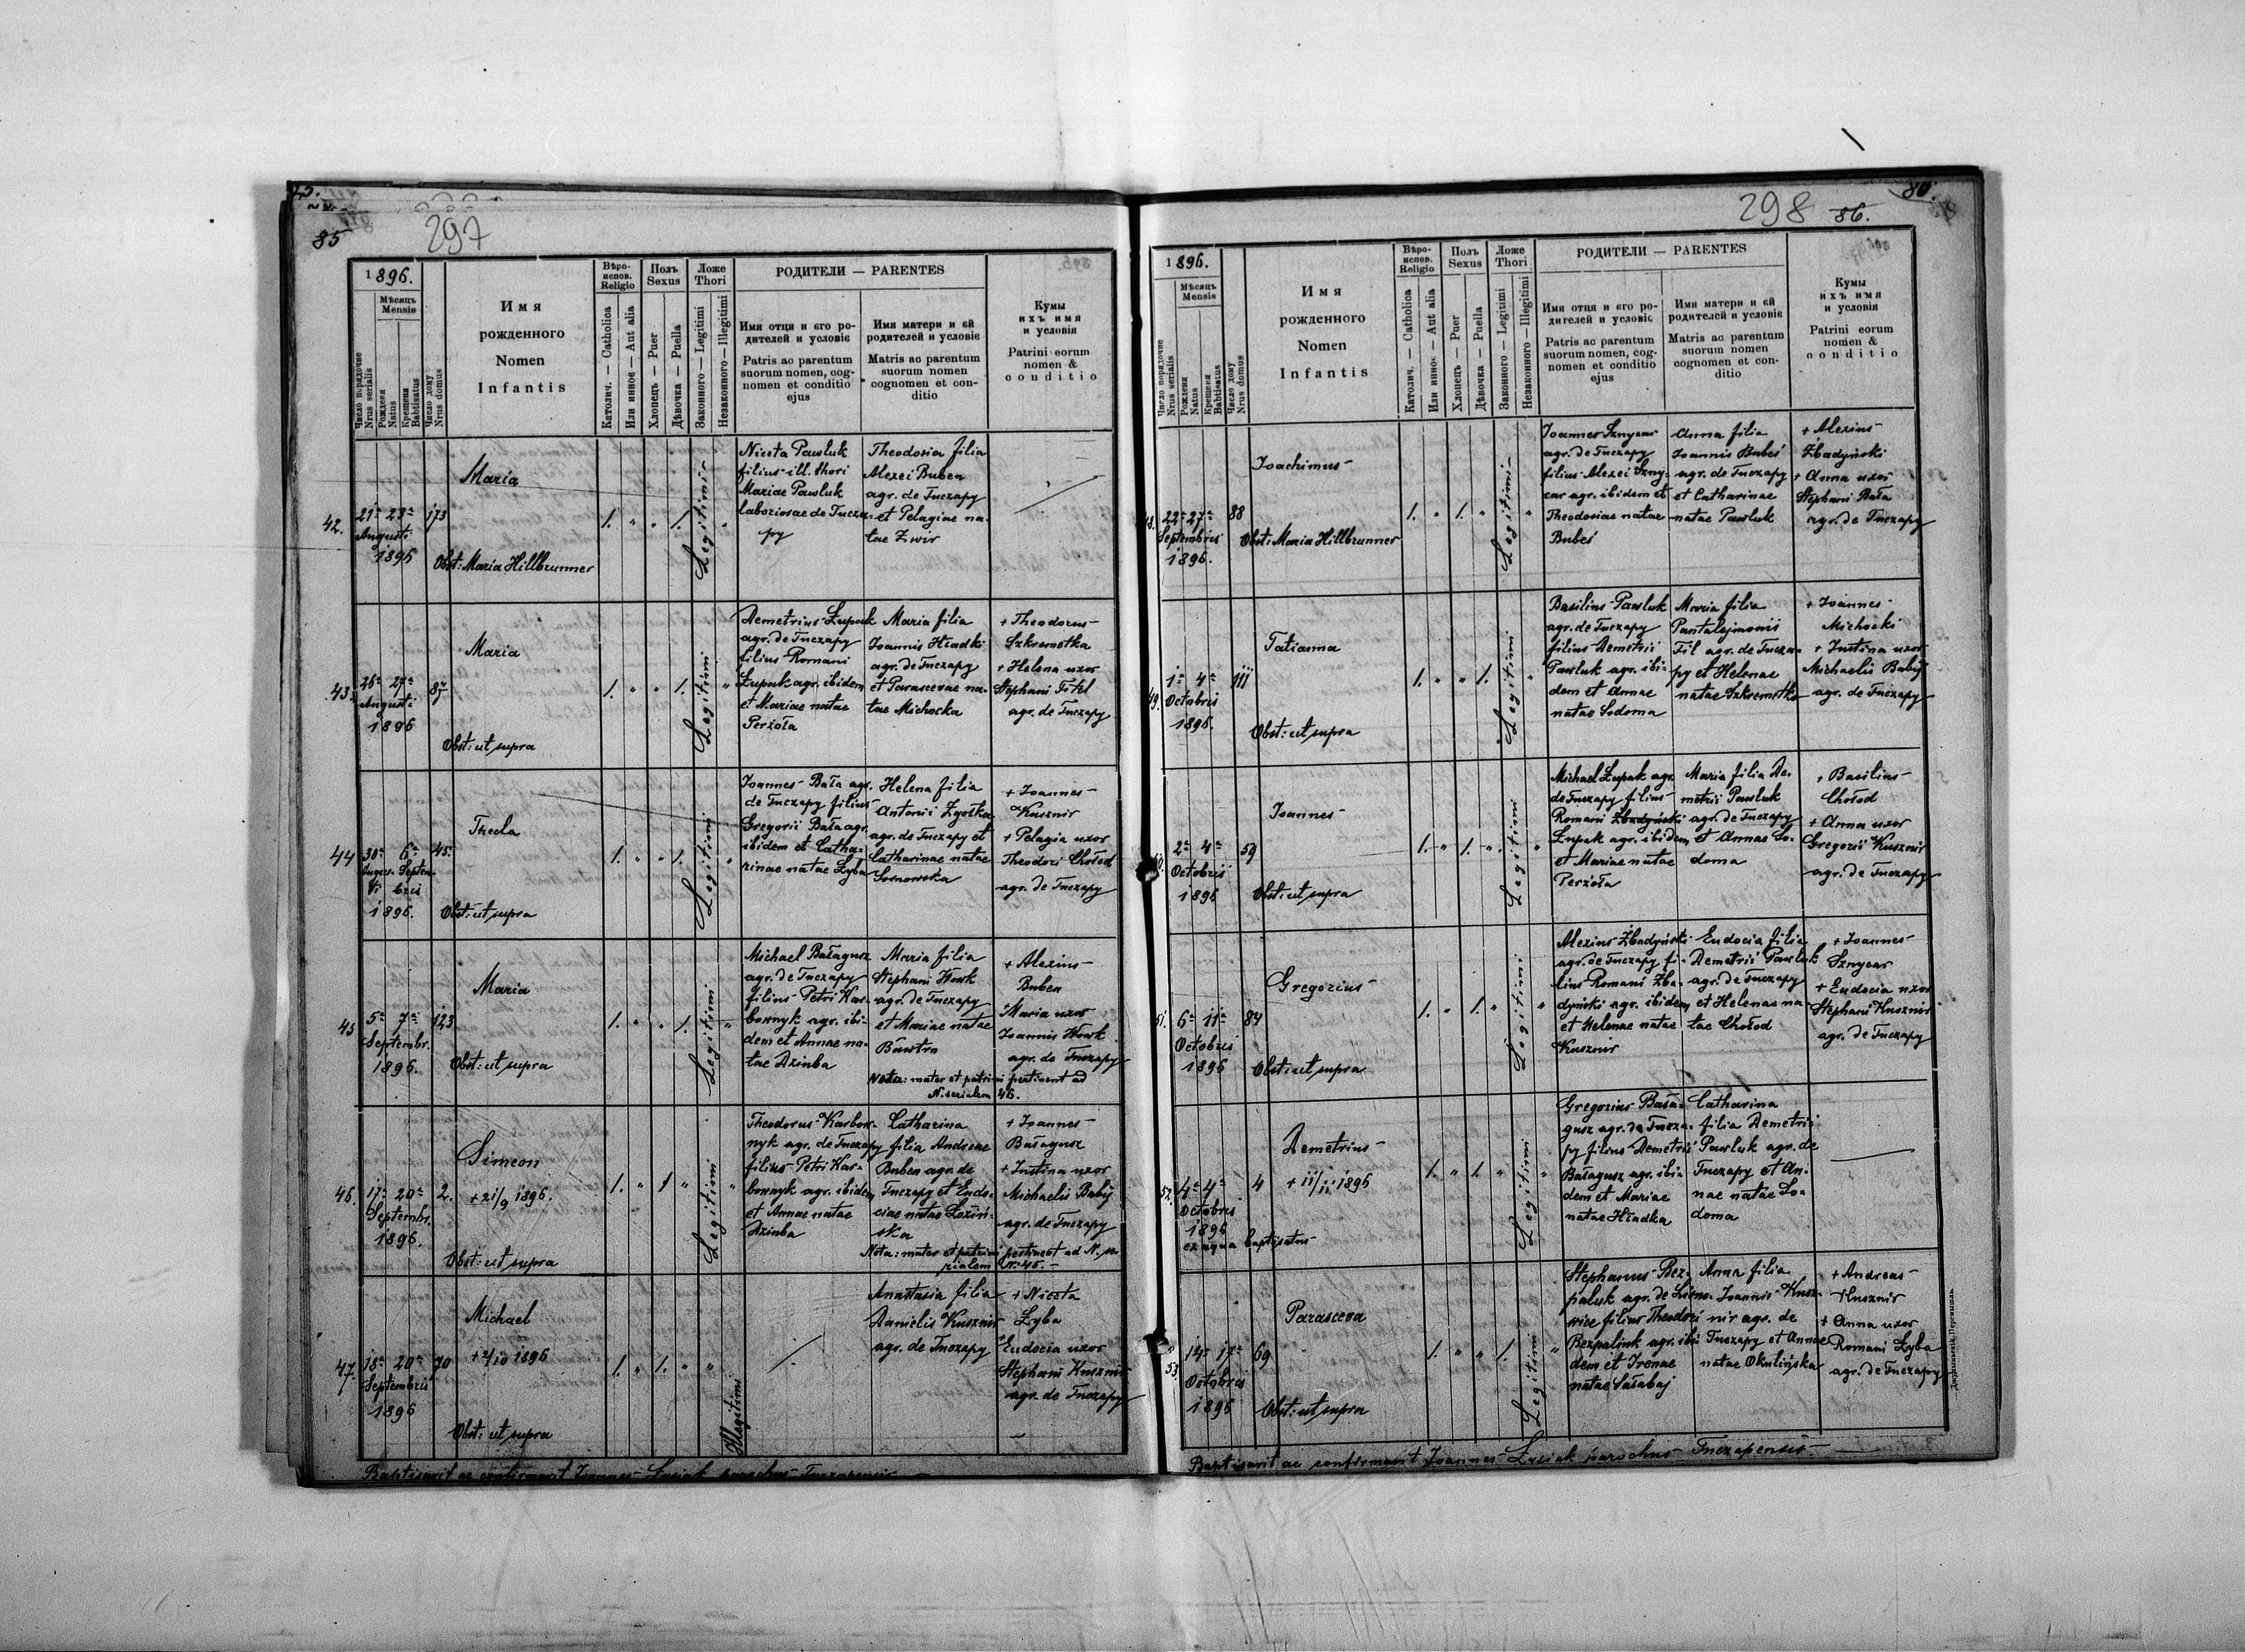 85
297
1896.
Мѣсяць
Mensis
Число порядочне
Nrus serialis
Рожденя
Natus
Крещеня
Babtisatus
Число дому
Nrus domus
Имя
рожденного
Nomen
Infantis
Вѣро-
испов.
Religio
Католич. — Catholica
Или инноє — Aut alia
Полъ
Sexus
Хлопець — Puer
Дѣвочка — Puella
Ложе
Thori
Законного — Legitimi
Незаконного — Illegitimi
РОДИТЕЛИ — PARENTES
Имя отця и єго ро-
дителей и условіє
Patris ac parentum
suorum nomen, cog-
nomen et conditio
ejus
Имя матери и єй
родителей и условіє
Matris ac parentum
suorum nomen
cognomen et con-
ditio
Кумы
ихъ имя
и условія
Patrini eorum
nomen &
conditio
42.
21a 23a
Augusti
1896
173
Maria
Obst: Maria Hillbrunner
1. " " 1. Legitimi "
Niceta Pawluk
filius ill. thori
Mariae Pawluk
laboriosae de Tucza-
py
Theodosia filia
Alexei Buben
agr. de Tuczapy
et Pelagiae na-
tae Zwir
43.
26a 27a
Augusti
1896
87
Maria
Obst: ut supra
1. " " 1. Legitimi "
Demetrius Łupak
agr. de Tuczapy
filius Romani
Łupak agr. ibidem
et Mariae natae
Perżoła
Maria filia
Joannis Hładki
agr. de Tuczapy
et Parascevae na-
tae Michocka
+ Theodorus
Szkremetka
+ Helena uxor
Stephani Titel
agr. de Tuczapy
44
30a 6a
Augus- Septem-
ti bris
1896.
45.
Thecla
Obst: ut supra
1. " " 1. Legitimi "
Joannes Bała agr.
de Tuczapy filius
Gregorii Bała agr.
ibidem et Catha-
rinae natae Zyba
Helena filia
Antonii Zgoŕka
agr. de Tuczapy et
Catharinae natae
Sosnowska
+ Joannes
Kusznir
+ Pelagia uxor
Theodori Chołod
agr. de Tuczapy
45
5a 7a
Septembr.
1896.
123
Maria
Obst: ut supra
1. " " 1. Legitimi "
Michael Bałagusz
agr. de Tuczapy
filius Petri Kar-
bownyk agr. ibi-
dem et Annae na-
tae Dziuba
Maria filia
Stephani Wowk
agr. de Tuczapy
et Mariae natae
+ Alexius
Buben
+ Maria uxor
Joannis Wowk
agr. de Tuczapy
Nota: mater et patrini pertinent ad
N. serialem 46.
46.
17a 20a
Septembr.
1896.
2.
Simeon
+ 21/9 1896.
Obst: ut supra
1. " 1 " Legitimi "
Theodorus Karbow-
nyk agr. de Tuczapy
filius Petri Kar-
bownyk agr. ibidem
et Annae natae
Dziuba
Catharina
filia Andreae
Buben agr. de
Tuczapy et Eudo-
ciae natae Łoziń-
ska
+ Joannes
Bałagusz
+ Justina uxor
Michaelis Babij
agr. de Tuczapy
Nota: mater et patrini pertinent ad N. se-
rialem N: 45. —
47.
18a 20a
Septembris
1896
70
Michael
1896
Obst: ut supra
1. " 1. " " Illegitimi
Anastasia filia
Danielis Kusznir
agr. de Tuczapy
+ Niceta
Zyba
+ Eudocia uxor
Stephani Kusznir
agr. de Tuczapy
Baptisavit ac confirmavit Joannes Łysiak parochus Tuczapensis
80.
298
86.
1896.
Мѣсяць
Mensis
Число порядочне
Nrus serialis
Рожденя
Natus
Крещеня
Babtisatus
Число дому
Nrus domus
Имя
рожденного
Nomen
Infantis
Вѣро-
испов.
Religio
Католич. — Catholica
Или инноє — Aut alia
Полъ
Sexus
Хлопець — Puer
Дѣвочка — Puella
Ложе
Thori
Законного — Legitimi
Незаконного — Illegitimi
РОДИТЕЛИ — PARENTES
Имя отця и єго ро-
дителей и условіє
Patris ac parentum
suorum nomen, cog-
nomen et conditio
ejus
Имя матери и єй
родителей и условіє
Matris ac parentum
suorum nomen
cognomen et con-
ditio
Кумы
ихъ имя
и условія
Patrini eorum
nomen &
conditio
48.
22a 27a
Septembris
1896.
88
Joachimus
Obst: Maria Hillbrunner
1. " 1. " Legitimi "
Joannes Sznycar
agr. de Tuczapy
filius Alexei Szny-
car agr. ibidem et
Theodosiae natae
Bubeś
Anna filia
Joannis Bubeś
agr. de Tuczapy
et Catharinae
natae Pawluk
+ Alexius
Żbadyński
+ Anna uxor
Stephani Bała
agr. de Tuczapy
49.
1a 4a
Octobris
1896.
111
Tatianna
Obst: ut supra
1. " " 1. Legitimi "
Basilius Pawluk
agr. de Tuczapy
filius Demetrii
Pawluk agr. ibi-
dem et Annae
natae Sodoma
Maria filia
Pantalejmonii
Til agr. de Tucza-
py et Helenae
natae Szkremetko
+ Joannes
Michocki
+ Justina uxor
Michaelis Babij
agr. de Tuczapy
50.
2a 4a
Octobris
1896
59
Joannes
Obst: ut supra
1. " 1. " Legitimi "
Michael Łupak agr.
de Tuczapy filius
Romani Żbadyński
Łupak agr. ibidem
et Mariae natae
Perżoła
Maria filia De-
metrii Pawluk
agr. de Tuczapy
et Annae So-
doma
+ Basilius
Chołod
+ Anna uxor
Gregorii Kusznir
agr. de Tuczapy
51.
6a 11a
Octobris
1896
84
Gregorius
Obst: ut supra
1. " 1. " Legitimi "
Alexius Żbadyński
agr. de Tuczapy fi-
lius Romani Żba-
dyński agr. ibidem
et Helenae natae
Kusznir
Eudocia filia
Demetrii Pawluk
agr. de Tuczapy
et Helenae na-
tae Chołod
+ Joannes
Sznycar
+ Eudocia uxor
Stephani Kusznir
agr. de Tuczapy
52.
4a 4a
Octobris
1896
ex aqua baptisatus
4
Demetrius
+ 11/11 1896
1. " 1. " Legitimi "
Gregorius Bała-
gusz agr. de Tucza-
py filius Demetrii
Bałagusz agr. ibi-
dem et Mariae
natae Hładka
Catharina
filia Demetrii
Pawluk agr. de
Tuczapy et An-
nae natae So-
doma
53.
14a 17a
Octobris
1896
69
Parasceva
Obst: ut supra
1. " " 1. Legitimi "
Stephanus Bez-
paluk agr. de
filius Theodori
Bezpaluk agr. ibi-
dem et Irenae
natae Sałabaj
Anna filia
Joannis Kusz-
nir agr. de
Tuczapy et Annae
natae Okulińska
+ Andreas
Kusznir
+ Anna uxor
Romani Zyba
agr. de Tuczapy
Baptisavit ac confirmavit Joannes Łysiak parochus Tuczapensis